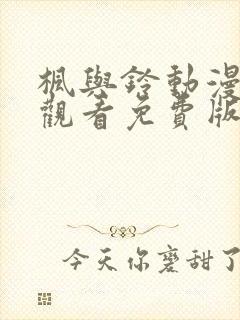 楓與鈴動漫
觀看免費版
今天你磨甜了